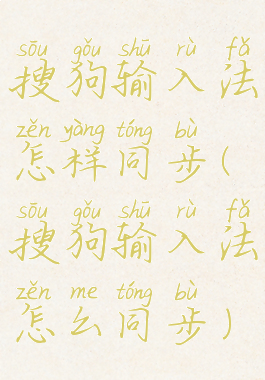 sōu gǒu shū rù fǎ
搜狗输入法
zěn yàng tóng bù
怎样同步(
sōu gǒu shū rù fǎ
搜狗输入法
zěn me tóng bù
怎么同步)